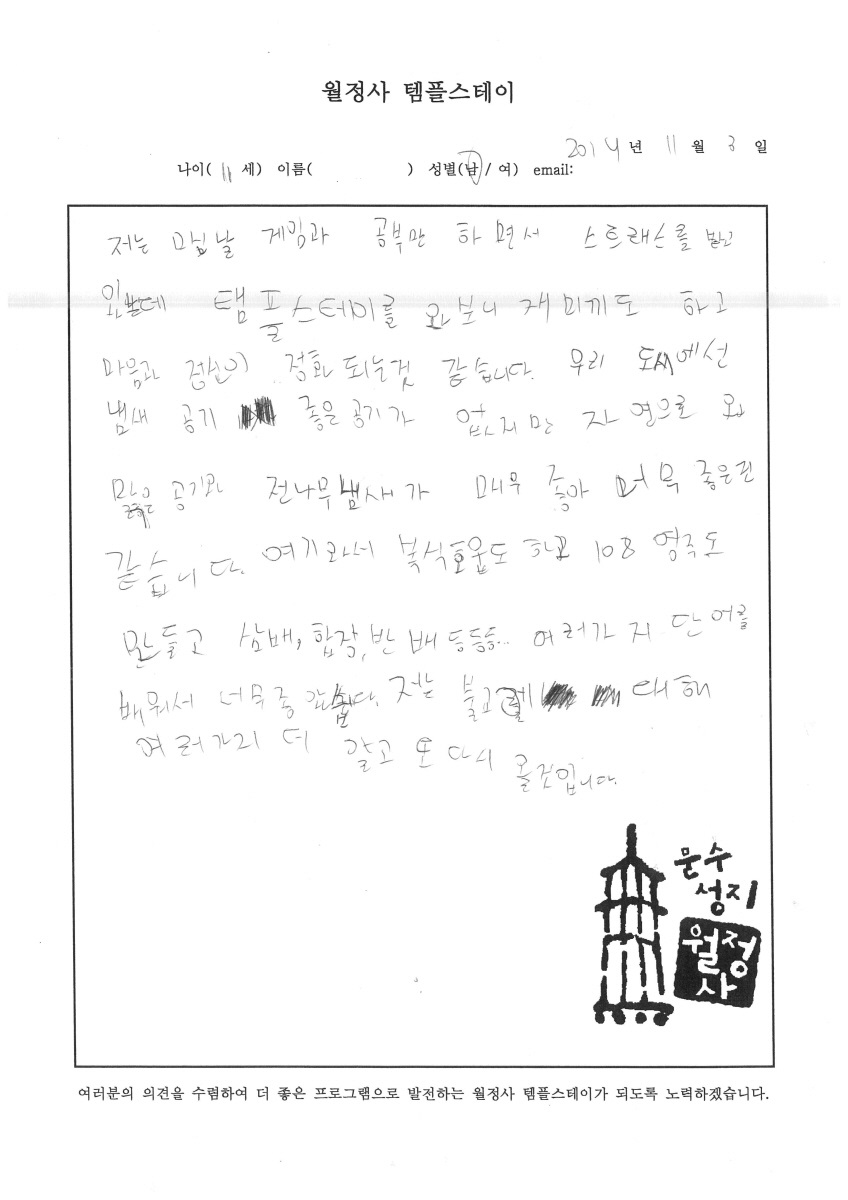 월정사 템플스테이
2014년 11월 3일
나이( 11 세) 이름( ) 성별(남/ 여) email:
저는 맨날 게임과 공부만 하면서 스트래스를 받고
있는데 탬플스테이를 와보니 재미끼도 하고
마음과 정신이 정화 되는것 같습니다. 우리 도시에선
냄새 공기 좋은 공기가 없지만 자연으로 와
맑은 공기와 전나무 냄새가 매우 좋아 더욱 좋은것
같습니다. 여기와서 복식호흡도 하고 108 염주도
만들고 삼배, 합장, 반배 등등등... 여러가지 단어를
배워서 너무 좋 습니다. 저는 불교 에 대해
여러가지 더 알고 또 다시 올것입니다.
문수
성지
월정
사
여러분의 의견을 수렴하여 더 좋은 프로그램으로 발전하는 월정사 템플스테이가 되도록 노력하겠습니다.